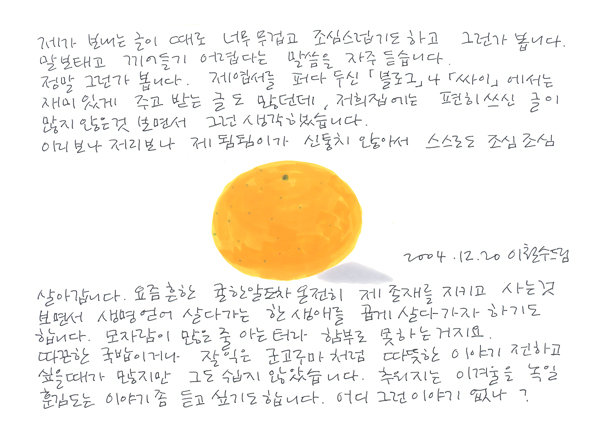 제가 보내는 글이 때로 너무 무겁고 조심스럽기도 하고 그런가 봅니다.
말 보태고 끼어들기 어렵다는 말씀을 자주 듣습니다.
정말 그런가 봅니다. 제 엽서를 퍼다 두신 「블로그」나 「싸이」에서는
재미있게 주고 받는 글도 많던데, 저희집에는 편히 쓰신 글이
많지 않은 것 보면서 그런 생각했습니다.
이리보나 저리보나 제 됨됨이가 신통치 않아서 스스로도 조심조심
2004.12.20 이철수드림
살아갑니다. 요즘 흔한 귤 한알조차 온전히 제 존재를 지키고 사는 것
보면서 생명 얻어 살다가는 한 생애를 곱게 살다 가자 하기도
합니다. 모자람이 많은 줄 아는 터라 함부로 못하는 거지요.
따끈한 국밥이거나 잘 익은 군고구마처럼 따뜻한 이야기 전하고
싶을 때가 많지만 그도 쉽지 않았습니다. 추워지는 이 겨울을 녹일
훈김도는 이야기 좀 듣고 싶기도 합니다. 어디 그런 이야기 없나?